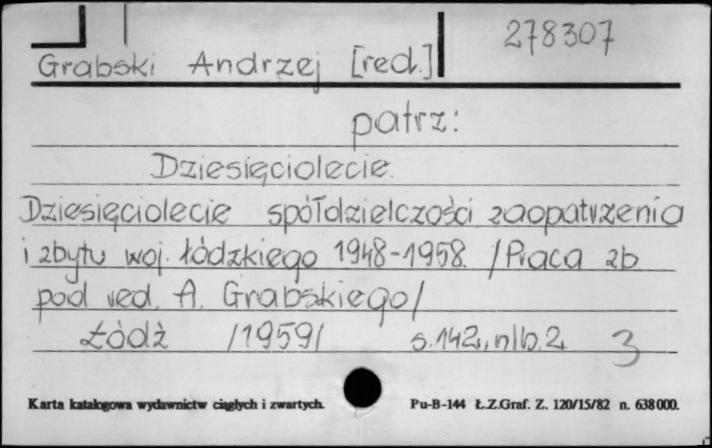 278307
Grabski Andrzej [red.]
patrz:
Dziesięciolecie.
Dziesięciolecie spółdzielczości zaopatrzenia
i zbytu woj. łódzkiego 1948-1958. /Praca zb
pod red. A. Grabskiego/
Łódź /1959/ s.142, nlb.2 3
Karta katalogowa wydawnictw ciągłych i zwartych. Pu-B-144 Ł.Z.Graf. Z. 120/15/82 n. 638000.